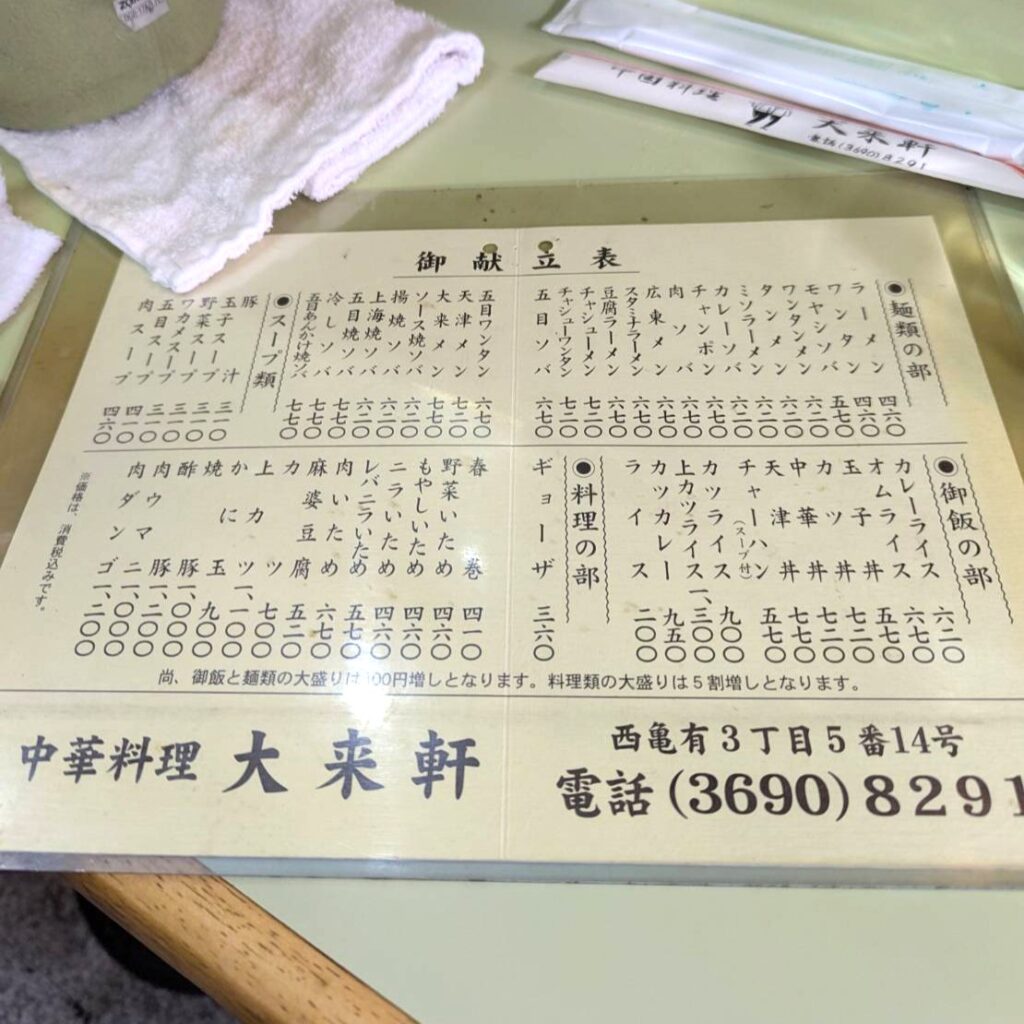 中国料理 大来軒
電話(3690)8291
御献立表
●麺類の部
ラーメン 四六〇
ワンタン 四六〇
モヤシソバ 五七〇
ワンタンメン 六二〇
タンメン 六二〇
ミソラーメン 六二〇
カレーソバ 六二〇
チャンポン 六七〇
肉ソバ 六七〇
広東メン 六七〇
スタミナラーメン 六七〇
豆腐ラーメン 六七〇
チャシューメン 七二〇
チャシューワンタン 七二〇
五目ソバ 六七〇
五目ワンタン 六七〇
天津メン 七二〇
大来メン 七七〇
ソース焼ソバ 六二〇
揚焼ソバ 六七〇
上海焼ソバ 六二〇
五目焼ソバ 七七〇
冷しソバ 七七〇
五目あんかけ焼ソバ 七七〇
●スープ類
豚汁 三一〇
玉子スープ 三一〇
野菜スープ 三一〇
ワカメスープ 三一〇
五目スープ 四一〇
肉スープ 四六〇
●御飯の部
カレーライス 六二〇
オムライス 六七〇
玉子丼 五七〇
カツ丼 七二〇
中華丼 七七〇
天津丼 七七〇
チャーハン(スープ付) 五七〇
カツライス 九〇〇
上カツライス 一、三〇〇
カツカレー 九五〇
ライス 二〇〇
●料理の部
ギョーザ 三六〇
春巻 四一〇
野菜いため 四六〇
もやしいため 四六〇
ニラいため 四六〇
レバニラいため 五七〇
肉いため 六七〇
麻婆豆腐 五二〇
カツ 七〇〇
上カツ 一、一〇〇
かに玉 九〇〇
焼豚 一、〇〇〇
酢豚 一、二〇〇
肉ウマニ 一、〇〇〇
肉ダンゴ 一、二〇〇
※価格は、消費税込みです。
尚、御飯と麺類の大盛りは100円増しとなります。料理類の大盛りは5割増しとなります。
中華料理 大来軒
西亀有3丁目5番14号
電話(3690)8291